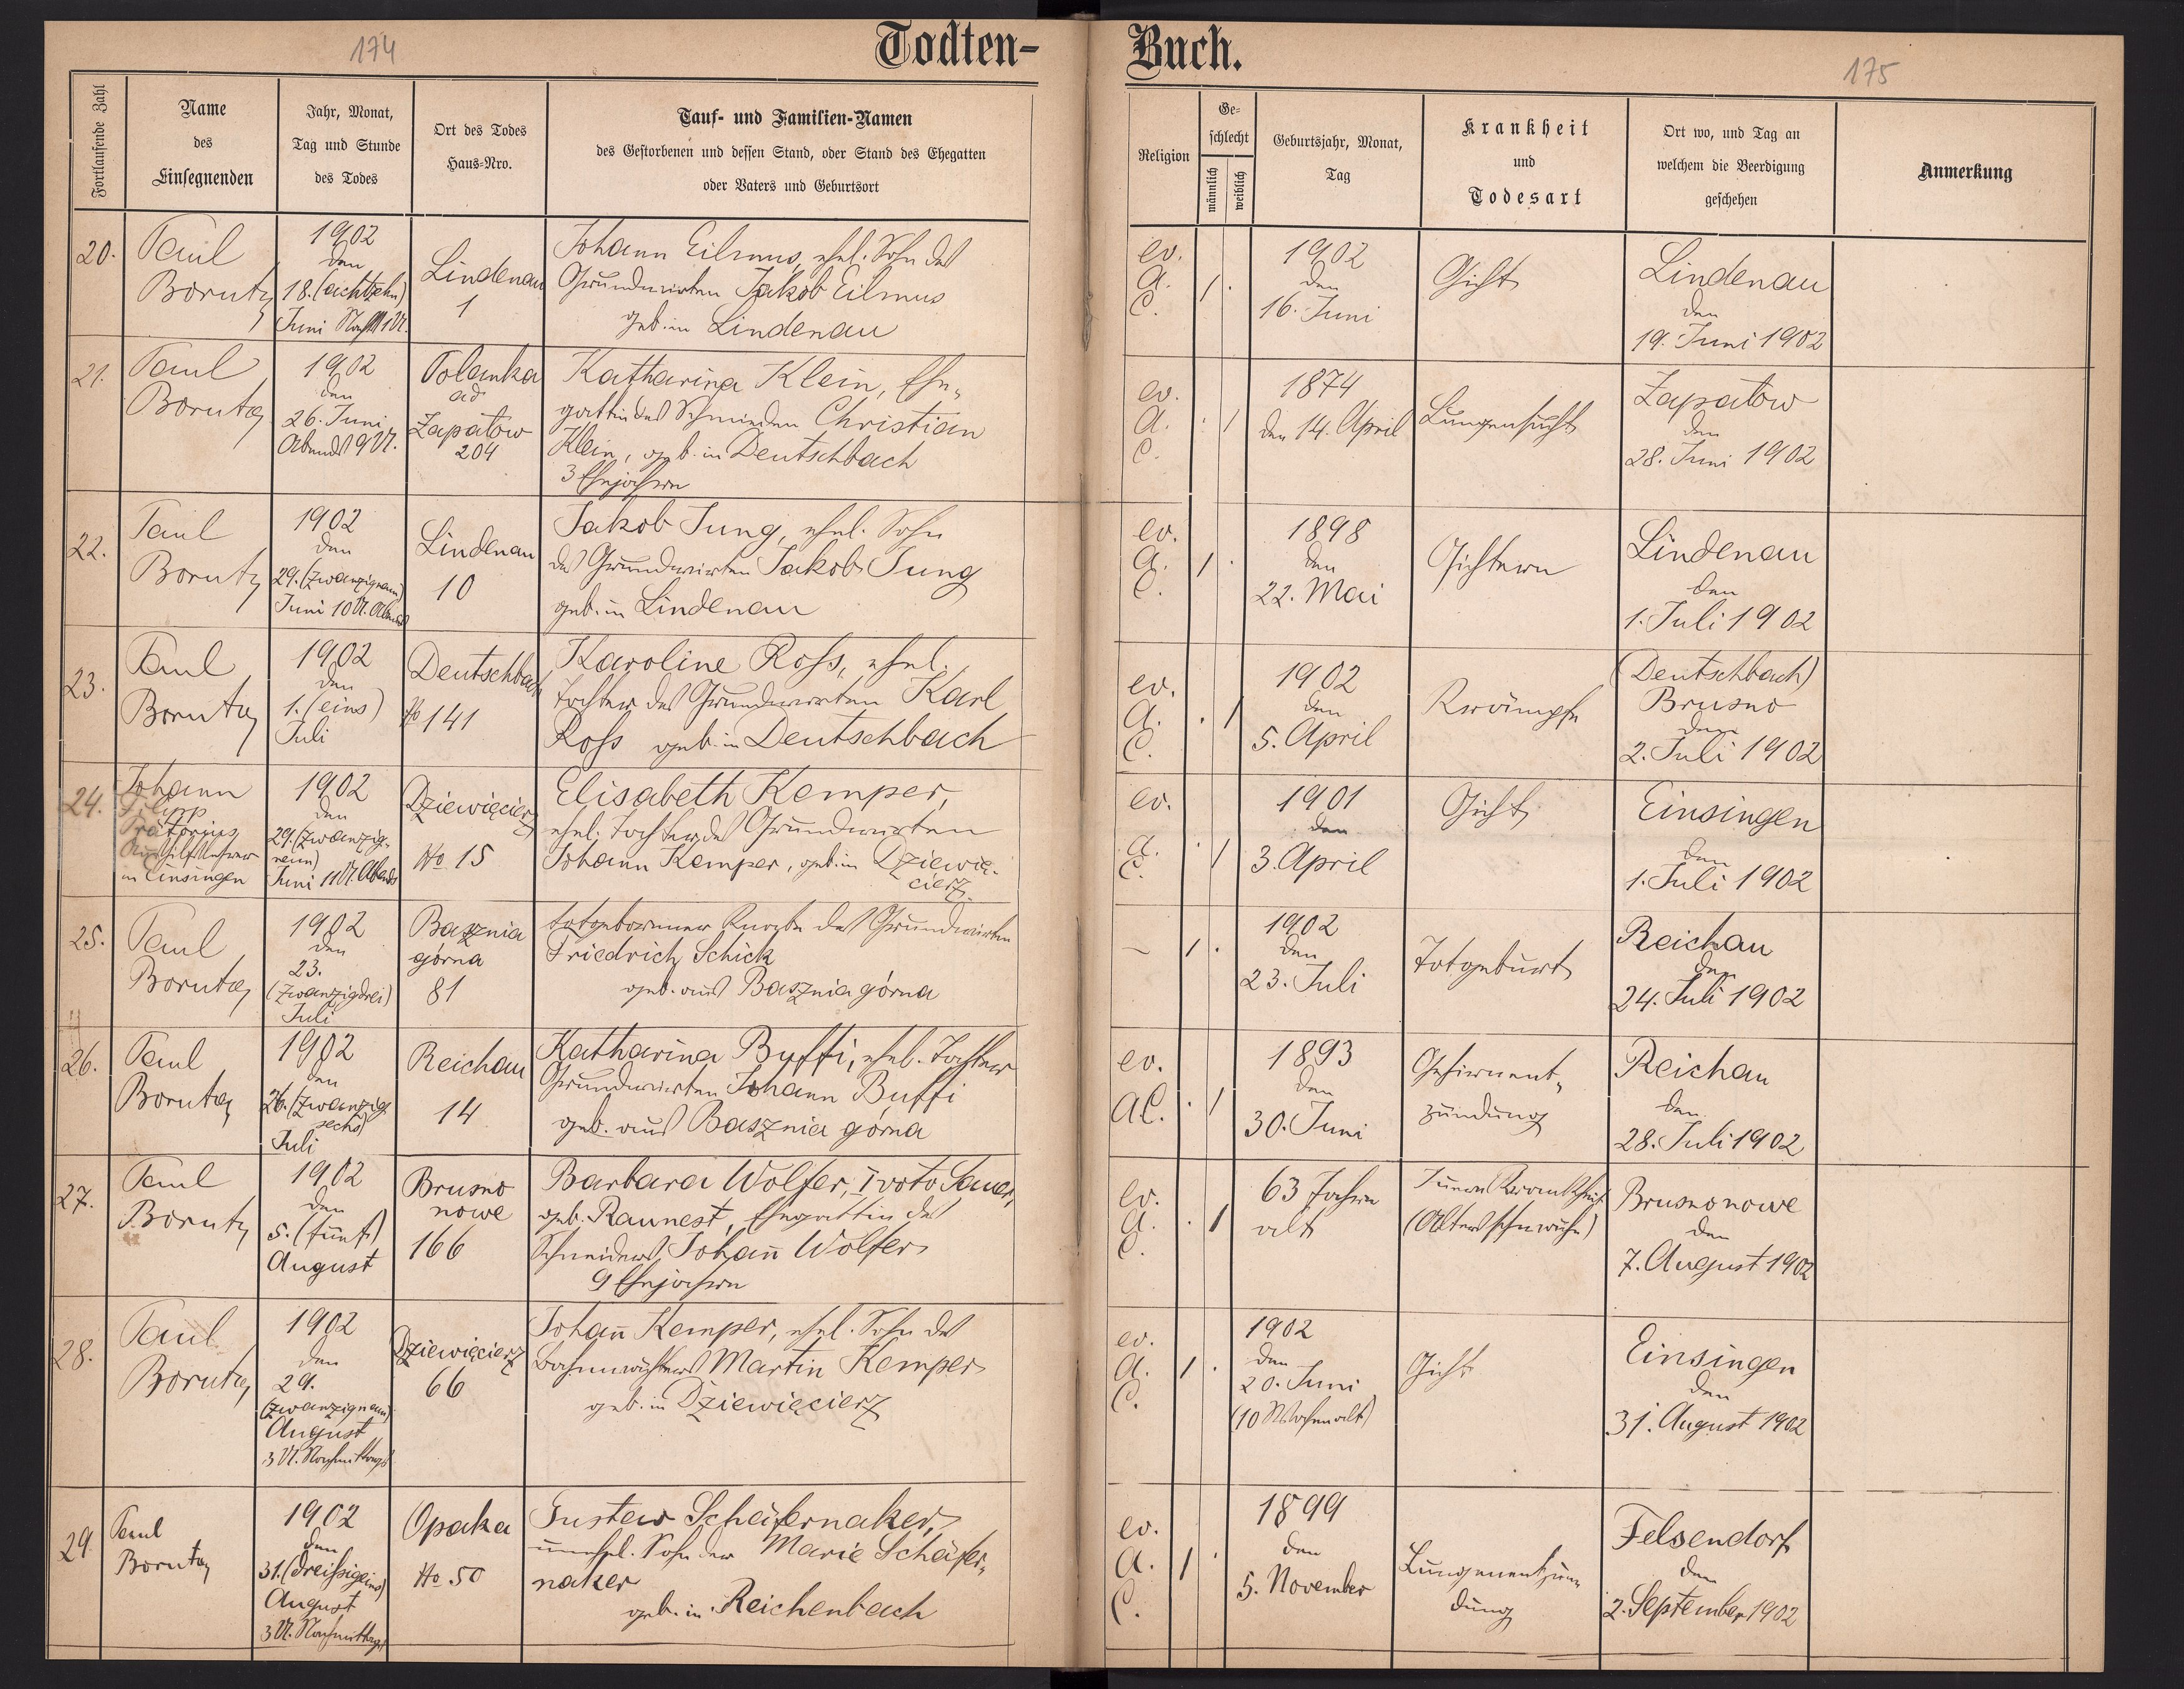 174
Todten-
Fortlaufende Zahl
Name
des
Einsegnenden
Jahr, Monat,
Tag und Stunde
des Todes
Ort des Todes
Haus-Nro.
Tauf- und Familien-Namen
des Gestorbenen und dessen Stand, oder Stand des Ehegatten
oder Vaters und Geburtsort
20.
Paul
Boruta
1902
den
18. (achtzehn)
Juni
Lindenau
1
Johann Eilmus, ehel. Sohn des
Grundwirten Jakob Eilmus
geb. in Lindenau
21.
Paul
Boruta
1902
den
26. Juni
Abends 9 U.
Polanka
ad
Zapałow
204
Katharina Klein, Ehe-
gattin des Schmieden Christian
Klein, geb. in Deutschbach
3 Ehejahre
22.
Paul
Boruta
1902
den
29. (zwanzigneun)
Juni 10 U. Abends
Lindenau
10
Jakob Jung, ehel. Sohn
des Grundwirten Jakob Jung
geb. in Lindenau
23.
Paul
Boruta
1902
den
1. (eins)
Juli
Deutschbach
No 141
Karoline Roß, ehel.
Tochter des Grundwirten Karl
Roß geb. in Deutschbach
24.
Johann
Filipp
Prätorius
Aushilfslehrer
in Einsingen
1902
den
29. (zwanzig-
neun)
Juni 11 U. Abends
Dziewięcierz
No 15
Elisabeth Kemper,
ehel. Tochter des Grundwirten
Johann Kemper, geb. in Dziewię-
cierz
25.
Paul
Boruta
1902
den
23.
(zwanzigdrei)
Juli
Basznia
górna
81
totgeborener Knabe des Grundwirten
Friedrich Schick
geb. aus Basznia górna
26.
Paul
Boruta
1902
den
26. (zwanzig-
sechs)
Juli
Reichau
14
Katharina Buffi, ehel. Tochter
Grundwirten Johann Buffi
geb. aus Basznia górna
27.
Paul
Boruta
1902
den
5. (fünf)
August
Brusno
nowe
166
Barbara Wolfer, I voto Sauer,
geb. Raunest, Ehegattin des
Schneiders Johann Wolfer
9 Ehejahre
28.
Paul
Boruta
1902
den
29.
(zwanzigneun)
August
3 U. Nachmittags
Dziewięcierz
66
Johann Kemper, ehel. Sohn des
Bahnwächters Martin Kemper
geb. in Dziewięcierz
29.
Paul
Boruta
1902
den
31. (dreißigeins)
August
3 U. Nachmittags
Opaka
No 50
Gustav Schäfernaker,
unehel. Sohn der Marie Schäfer-
naker
geb. in Reichenbach
175
Buch.
Religion
Ge-
schlecht
männlich
weiblich
Geburtsjahr, Monat,
Tag
Krankheit
und
Todesart
Ort wo, und Tag an
welchem die Beerdigung
geschehen
Anmerkung
ev.
A.
C.
1
.
1902
den
16. Juni
Gicht
Lindenau
den
19. Juni 1902
ev.
A.
C.
.
1
1874
den 14. April
Lungensucht
Zapałow
den
28. Juni 1902
ev.
A.
C.
1
.
1898
den
22. Mai
Gichtern
Lindenau
den
1. Juli 1902
ev.
A.
C.
.
1
1902
den
5. April
Krämpfe
(Deutschbach)
Brusno
den
2. Juli 1902
ev.
A.
C.
.
1
1901
den
3. April
Gicht
Einsingen
den
1. Juli 1902
–
1
.
1902
den
23. Juli
Totgeburt
Reichau
den
24. Juli 1902
ev.
AC.
.
1
1893
den
30. Juni
Gehirnent-
zündung
Reichau
den
28. Juli 1902
ev.
A.
C.
.
1
63 Jahre
alt
Innere Krankheit
(Altersschwäche)
Brusno nowe
den
7. August 1902
ev.
A.
C.
1
.
1902
den
20. Juni
(10 Wochen alt)
Gicht
Einsingen
den
31. August 1902
ev.
A.
C.
1
.
1899
den
5. November
Lungenentzün-
dung
Felsendorf
den
2. September 1902